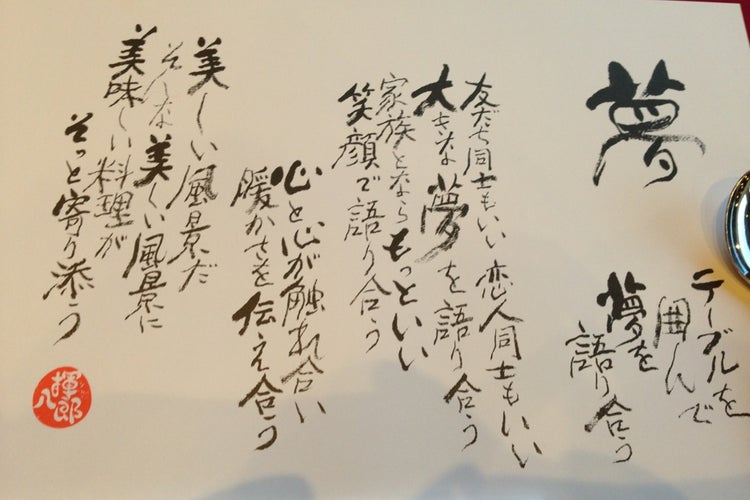 夢
テーブルを
囲んで
夢を
語り合う
友だち同士もいい 恋人同士もいい
大きな夢を語り合う
家族とならもっといい
笑顔で語り合う
心と心が触れ合い
暖かさを伝え合う
美しい風景だ
そんな美しい風景に
美味しい料理が
そっと寄り添う
揮八郎